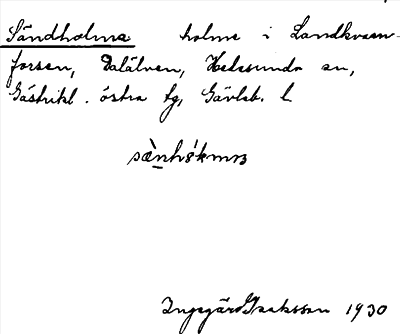 Sändholma holme i Landkvarn-
forsen, Dalälven, Hedesunda sn,
Gästrikl. östra tg, Gävleb. l
Ingegärd Isaksson 1930